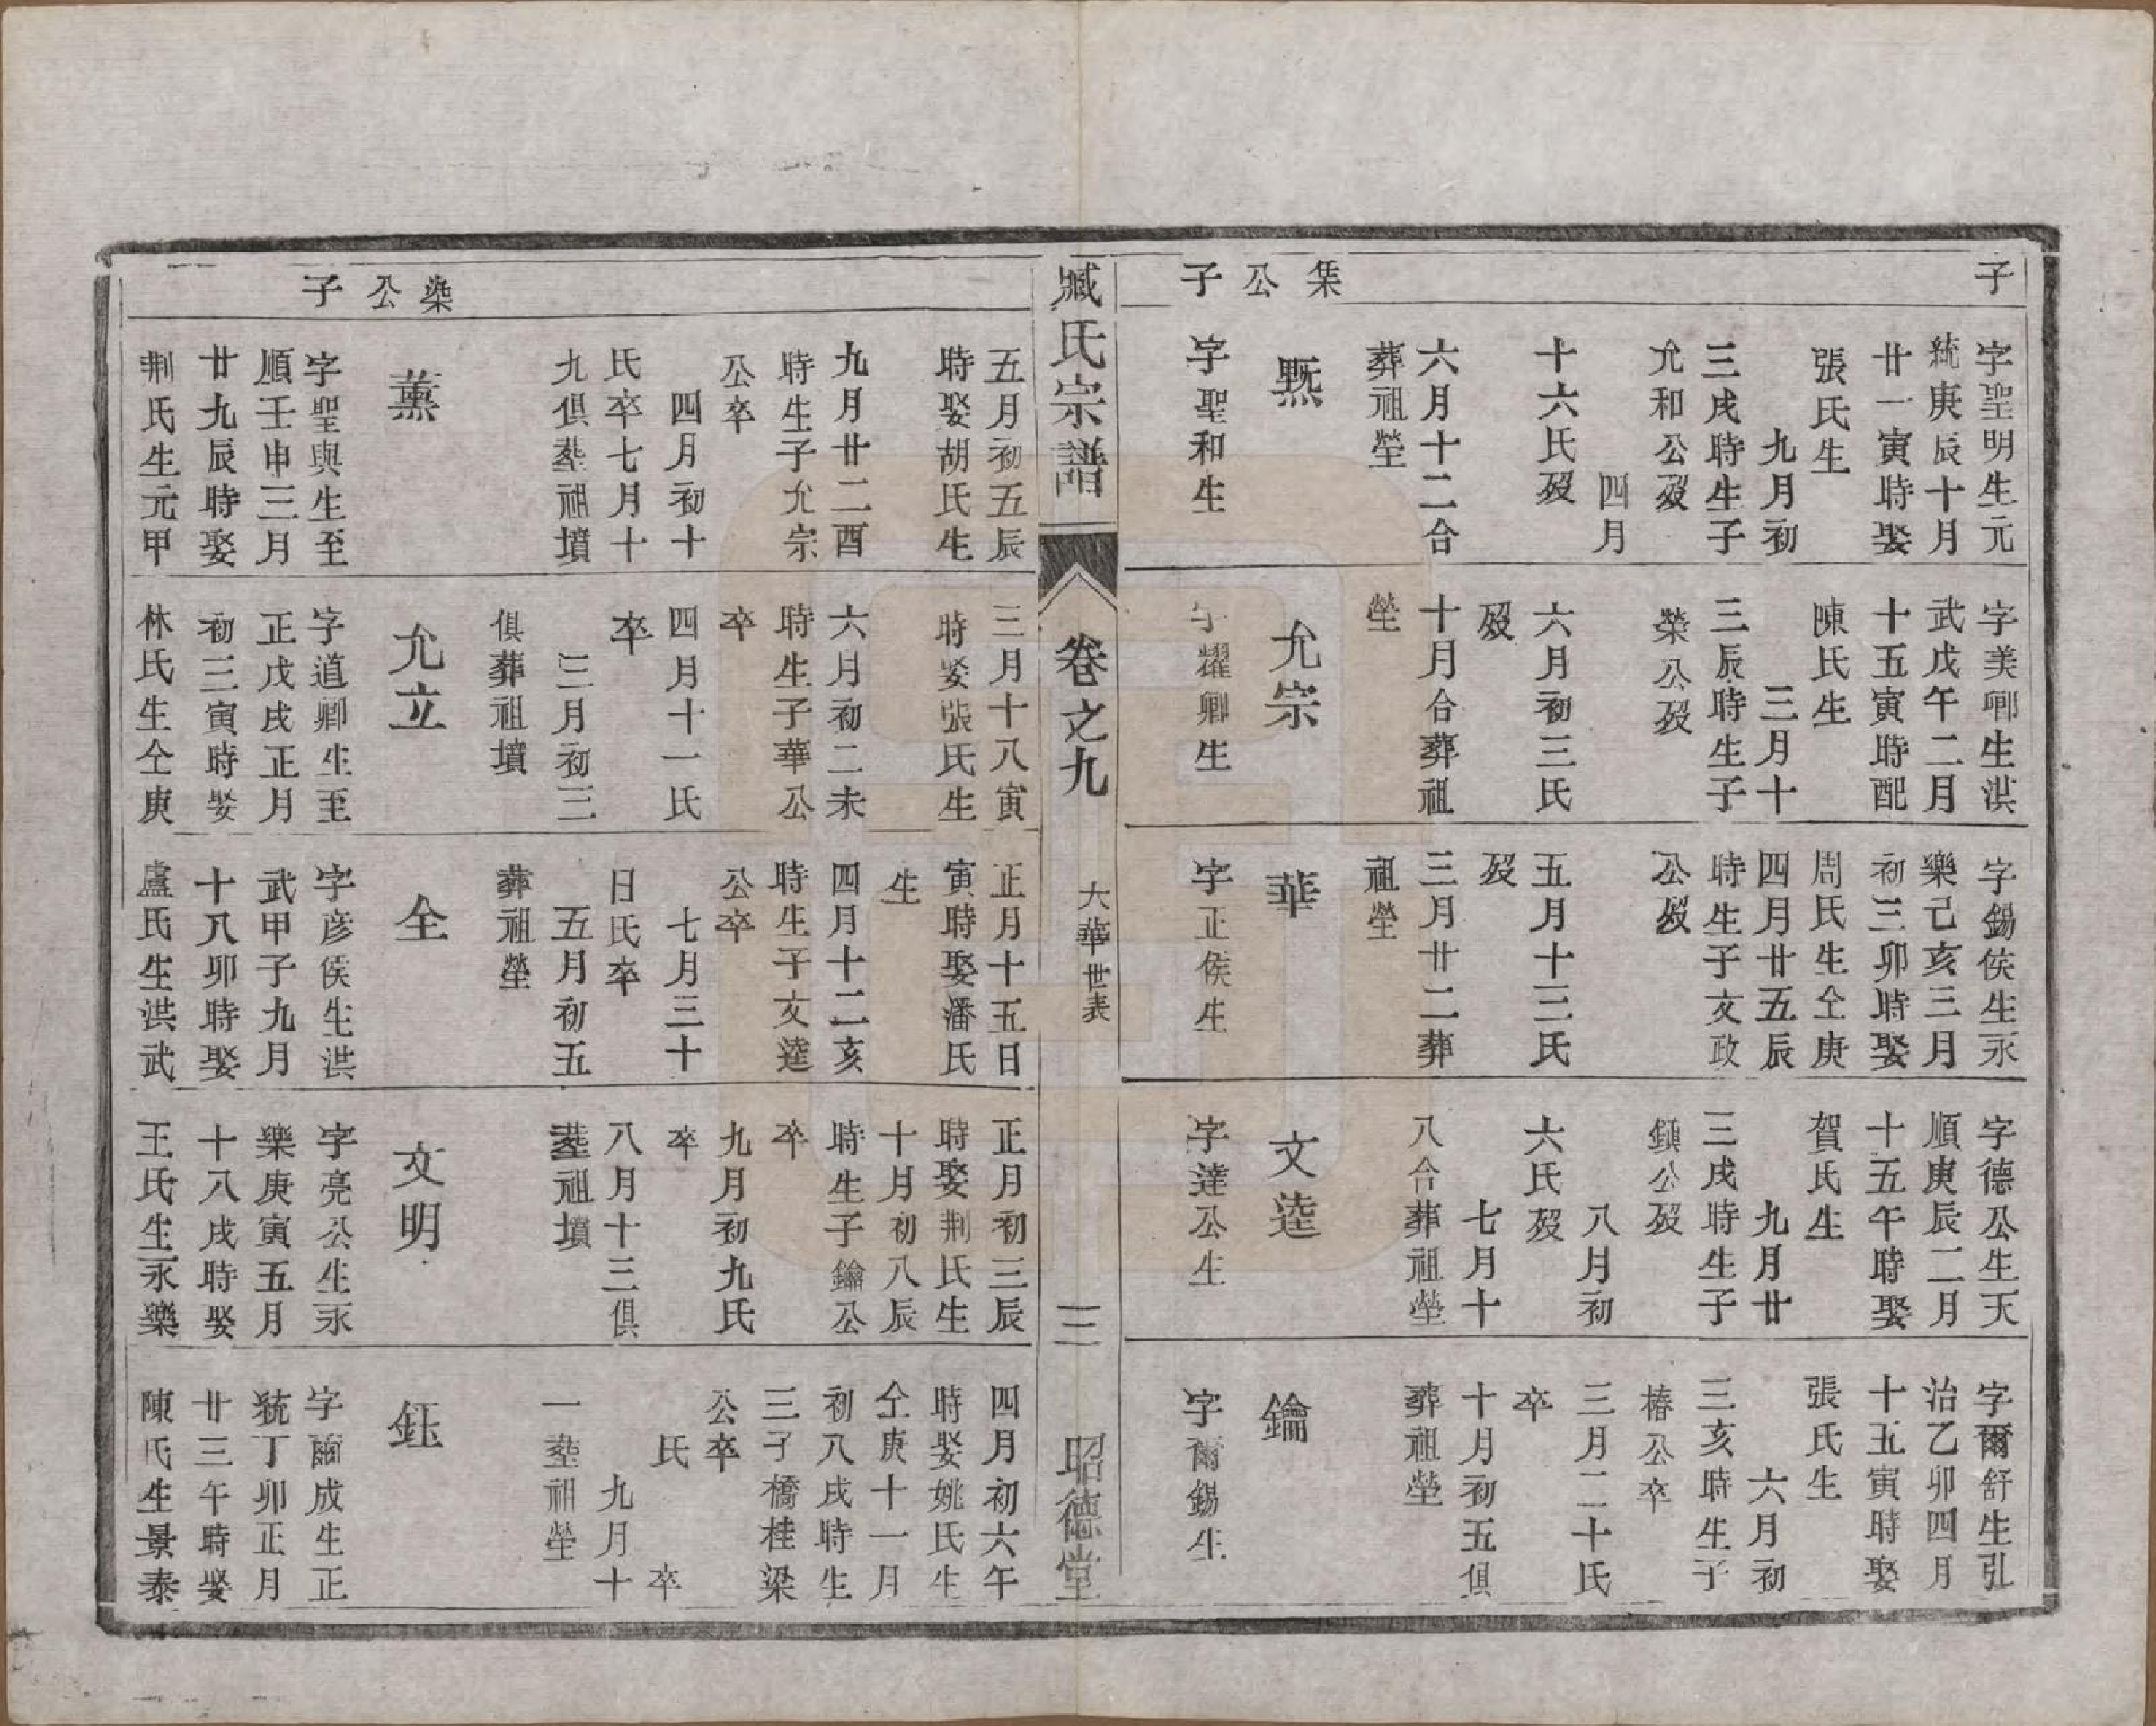 子
字聖明生元
統庚辰十月
廿一寅時娶
張氏生
九月初
三戌時生子
允和公歿
四月
十六氏歿
六月十二合
葬祖塋
字美卿生洪
武戊午二月
十五寅時配
陳氏生
三月十
三辰時生子
榮公歿
六月初三氏
歿
十月合葬祖
塋
字錫侯生永
樂己亥三月
初三卯時娶
周氏生仝庚
四月廿五辰
時生子文政
公歿
五月十三氏
歿
三月廿二葬
祖塋
字德公生天
順庚辰二月
十五午時娶
賀氏生
九月廿
三戌時生子
鎮公歿
八月初
六氏歿
七月十
八合葬祖塋
字爾舒生弘
治乙卯四月
十五寅時娶
張氏生
六月初
三亥時生子
椿公卒
三月二十氏
卒
十月初五俱
葬祖塋
公子
字聖和生
允宗
字耀卿生
華
字正侯生
文逵
字達公生
鑰
字爾錫生
臧氏宗譜
卷之九
大華世表
三
昭德堂
五月初五辰
時娶胡氏生
九月廿二酉
時生子允宗
公卒
四月初十
氏卒七月十
九俱塟祖墳
三月十八寅
時娶張氏生
六月初二未
時生子華公
卒
四月十一氏
卒
三月初三
俱葬祖墳
正月十五日
寅時娶潘氏
生
四月十二亥
時生子文逵
公卒
七月三十
日氏卒
五月初五
葬祖塋
正月初三辰
時娶荆氏生
十月初八辰
時生子鑰公
卒
九月初九氏
卒
八月十三俱
塟祖墳
四月初六午
時娶姚氏生
仝庚十一月
初八戌時生
三子橋桂梁
公卒
氏
卒
九月十
一塟祖塋
公子
薰
字聖與生至
順壬申三月
廿九辰時娶
荆氏生元甲
允立
字道卿生至
正戊戌正月
初三寅時娶
林氏生仝庚
全
字彥侯生洪
武甲子九月
十八卯時娶
盧氏生洪武
文明
字亮公生永
樂庚寅五月
十八戌時娶
王氏生永樂
鈺
字爾成生正
統丁卯正月
廿三午時娶
陳氏生景泰